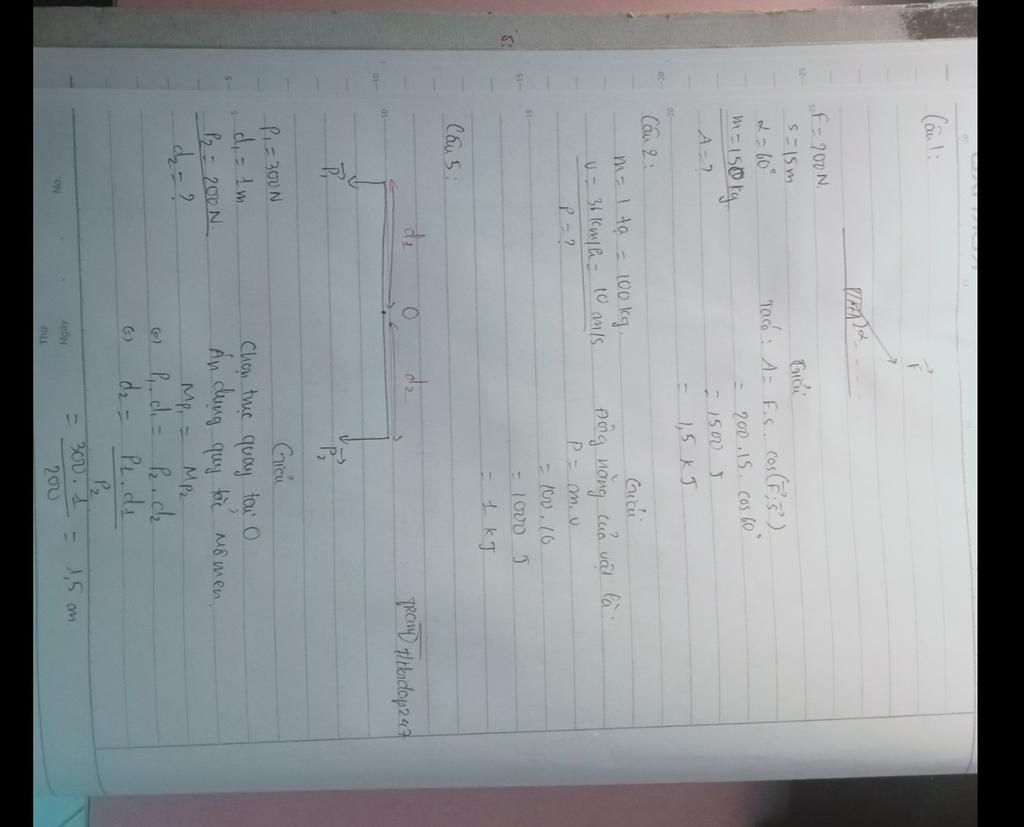 Câu 1:
F
α
F = 200 N
s = 15 m
α = 60°
m = 150 kg
A = ?
Giải
Ta có: A = F.s. cos(F;s)
= 200.15. cos 60°
= 1500 J
= 1,5 kJ
Câu 2:
m = 1 tạ = 100 kg.
v = 36 km/h = 10 m/s
P = ?
Giải
Động năng của vật là:
P = m.v
= 100.10
= 1000 J
= 1 kJ
tramy71/Hoidap247
Câu 5:
d1 O d2
P1 P2
P1 = 300 N
d1 = 1 m
P2 = 200 N.
d2 = ?
Giải
Chọn trục quay tại O
Áp dụng quy tắc mômen.
MP1 = MP2
(=) P1.d1 = P2.d2
(=) d2 = P1.d1 / P2
= 300.1 / 200 = 1,5 m
Ngày
No